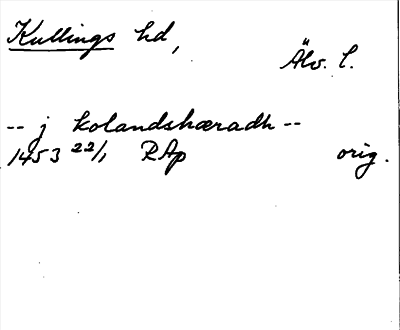 Kullings hd,
Älv. l.
-- j kolandshæradh --
1453 22/1 RAp orig.